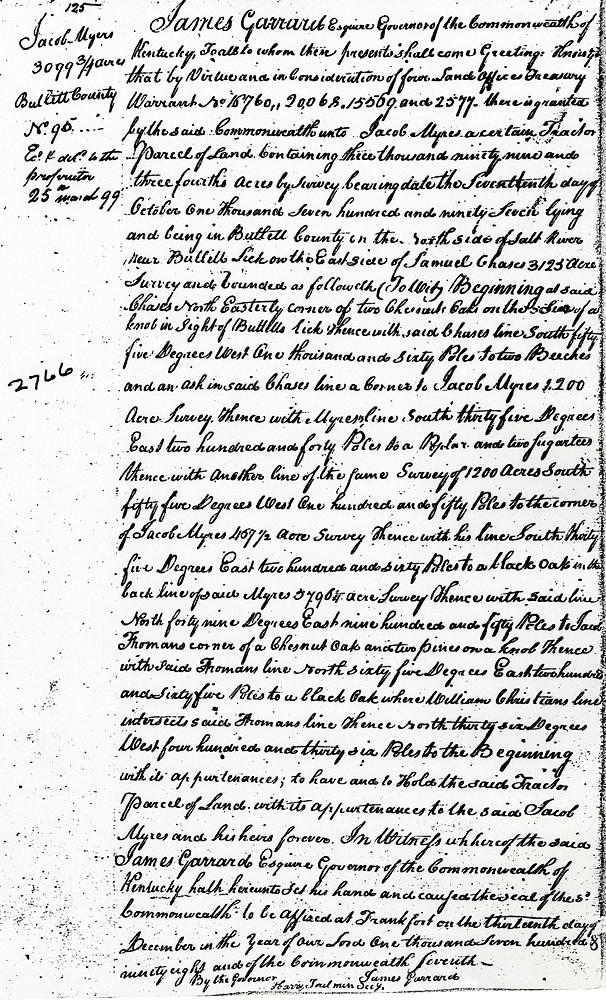 125
Jacob Myers
3099 3/4 acres
Bullitt County
No. 90
Ex.d & del.d to the
prosecutor
25 march 99
2766
James Garrard Esquire Governor of the Commonwealth of
Kentucky, To all to whom these presents shall come Greeting: Know ye
that by Virtue and in Consideration of four Land Office Treasury
Warrant No. 16760,, 20,068, 15559, and 2577. there is granted
by the said Commonwealth unto Jacob Myres a certain Tract or
Parcel of Land Containing three thousand ninety nine and
three fourths Acres by Survey bearing date the Seventeenth day of
October One Thousand Seven hundred and ninety Seven lying
and being in Bullitt County on the North side of Salt River
near Bullitts Lick on the East side of Samuel Chases 3125 Acre
Survey and bounded as followeth (To Wit) Beginning at said
Chases North Easterly corner of two Chesnut Oaks on the side of a
knob in Sight of Bullitts lick Thence with said Chases line South fifty
five Degrees West One thousand and Sixty Poles to two Beeches
and an ash in said Chases line a Corner to Jacob Myres 1200
Acre Survey, Thence with Myres line South thirty five Degrees
East two hundred and forty Poles to a Poplar and two Sugartrees
thence with another line of the same Survey of 1200 Acres South
fifty five Degrees West One hundred and fifty Poles to the corner
of Jacob Myres 467 1/2 Acre Survey Thence with his line South thirty
five Degrees East two hundred and sixty Poles to a black Oak in the
back line of said Myres acre Survey Thence with said line
North forty nine Degrees East nine hundred and fifty Poles to Jacob
Fromans corner of a Chesnut Oak and two pines on a knob Thence
with Said Fromans line North sixty five Degrees East two hundred
and Sixty five Poles to a black Oak where William Christians line
intersects said Fromans line Thence North thirty six Degrees
West four hundred and thirty six Poles to the Beginning
with its appurtenances; to have and to Hold the said Tract or
Parcel of Land with its appurtenances to the said Jacob
Myres and his heirs forever. In Witness whereof the said
James Garrard Esquire Governor of the Commonwealth of
Kentucky hath hereunto Set his hand and caused the seal of the sd
Commonwealth to be affixed at Frankfort on the thirteenth day of
December in the Year of our Lord One thousand Seven hundred &
ninety eight and of the Commonwealth Seventh -
By the Governor James Garrard
Harry Toulmin Secy.